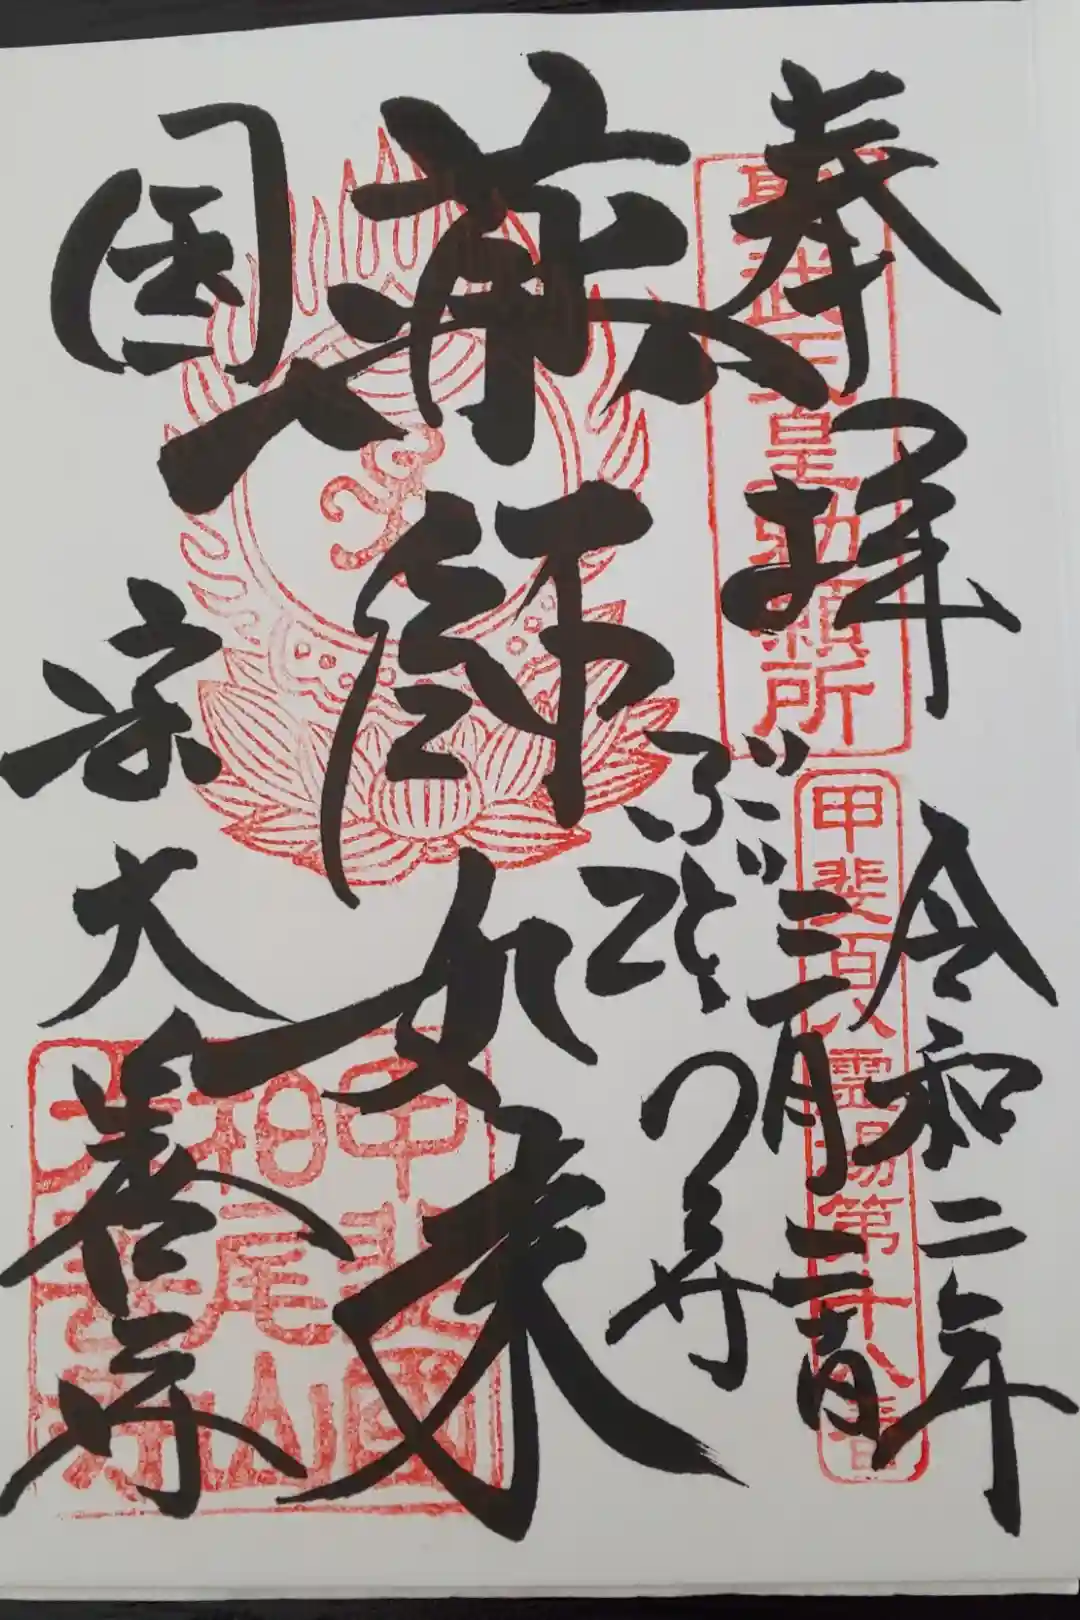 奉拝
令和二年
三月二十日
聖武天皇勅願所
甲斐百八霊場第十八番
ぶどう
薬師如来
国宝
大善寺
甲斐国
柏尾山
大善寺